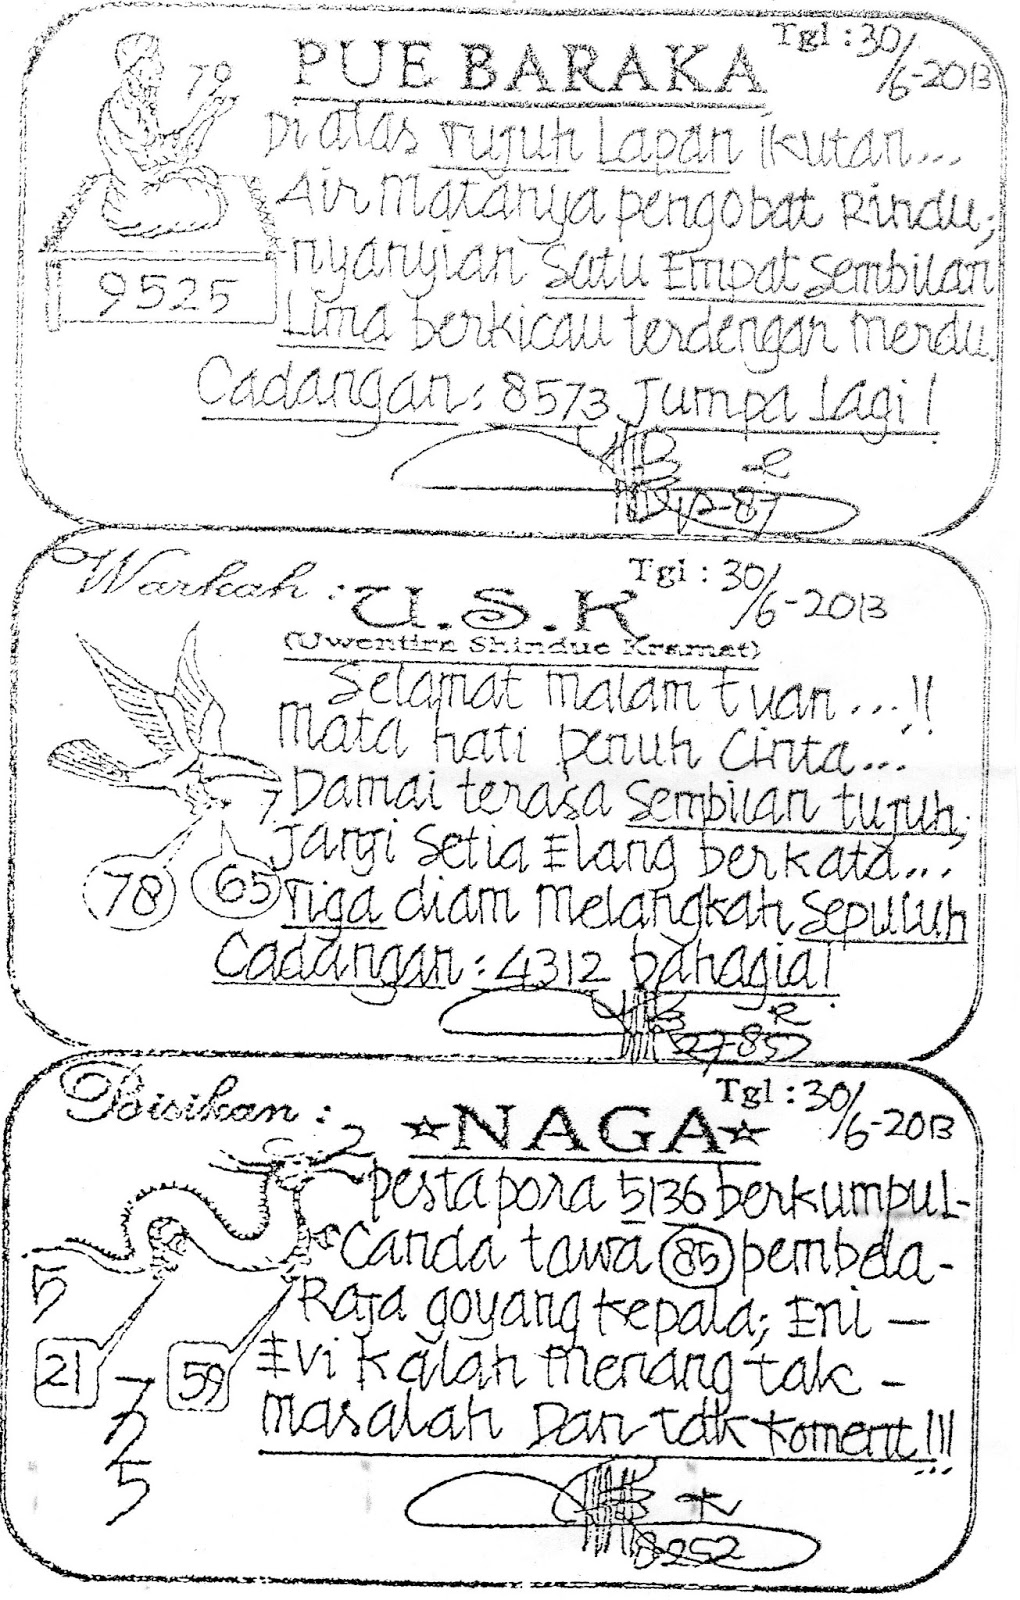 Tgl : 30/6-2013
PUE BARAKA
79
Di atas Tujuh Lapan Ikutan...
Air Matanya pengobat Rindu,
nyanyian Satu Empat Sembilan
9525
Lima berkicau terdengar Merdu.
Cadangan : 8573 Jumpa Lagi !
-R
Warkah : U.S.K
Tgl : 30/6-2013
(Uwentira Shindue Kramat)
Selamat malam tuan...!!
Mata hati penuh Cinta...
Damai terasa Sembilan tujuh,
7
Janji Setia Elang berkata...
78 65
Tiga diam Melangkah Sepuluh
Cadangan : 4312 bahagia!
-R
Bisikan : ☆NAGA☆
Tgl : 30/6-2013
2
Pesta pora 5136 berkumpul-
Canda tawa 85 pembela-
5
Raja goyang kepala; Eni —
21 59
Evi kalah Menang tak -
7
Masalah Dan tdk koment!!!
2
5
8252